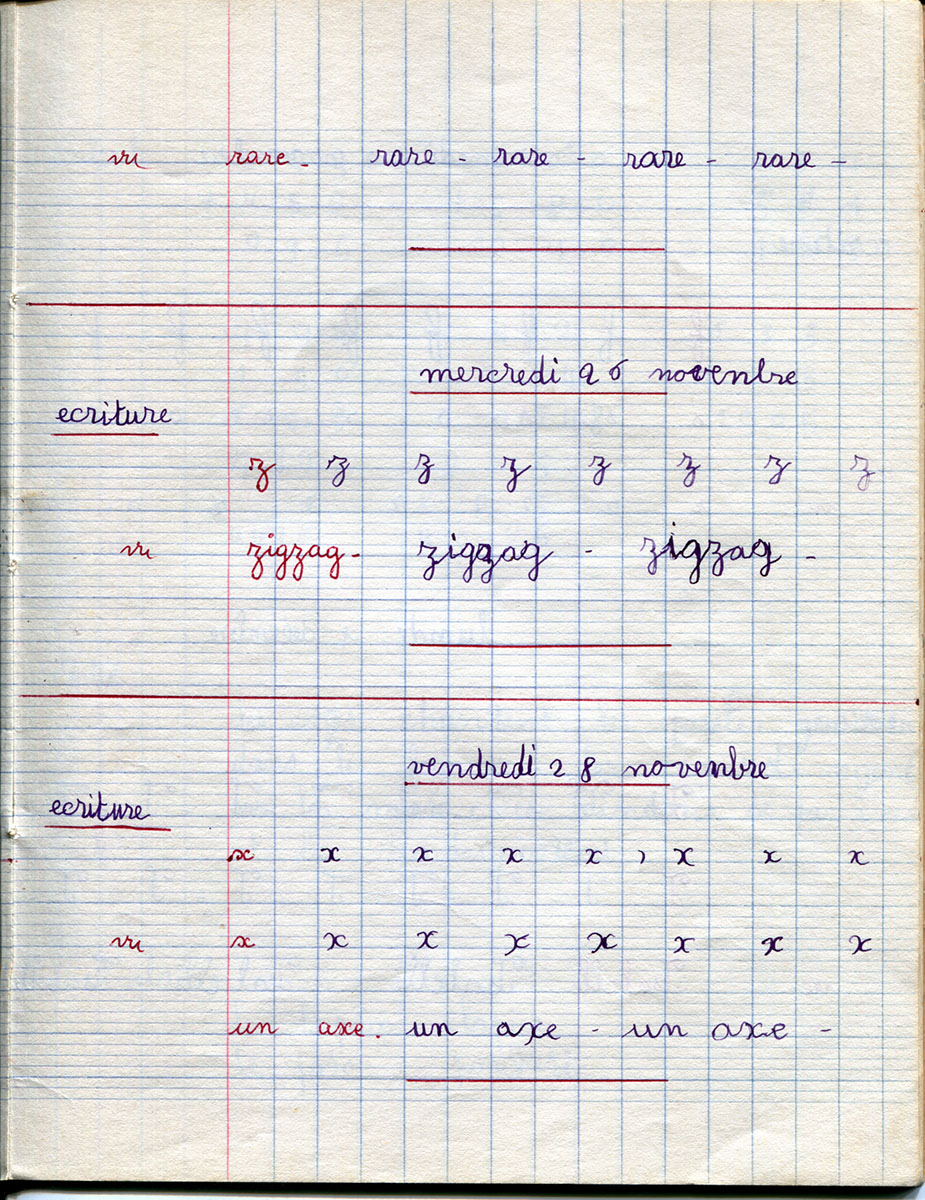 vu rare - rare - rare - rare - rare -
mercredi 26 novenbre
ecriture
z z z z z z z z
vu zigzag - zigzag - zigzag -
vendredi 28 novenbre
ecriture
x x x x x x x x
vu x x x x x x x x
un axe. un axe - un axe -